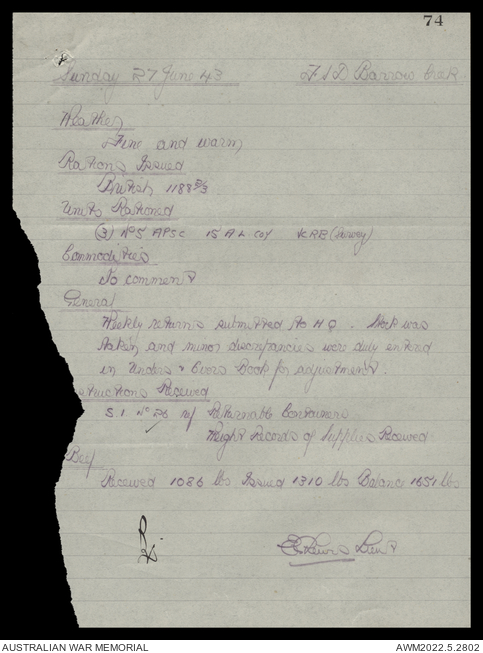 74
Sunday 27 June 43 FSD Barrow Creek
Weather
Fine and warm
Rations Issued
British 1188 2/3
Units Rationed
(3) No 5 APSC 15 A L Coy KRB (Survey)
Commodities
No comment
General
Weekly returns submitted to HQ. Stock was
taken and minor discrepancies were duly entered
in Unders & Overs Book for adjustment.
Instructions Received
S.I. No 26 Returnable Containers
Weight Records of Supplies Received
Beef
Received 1086 lbs Issued 1310 lbs Balance 1651 lbs
Lieut
AUSTRALIAN WAR MEMORIAL AWM2022.5.2802